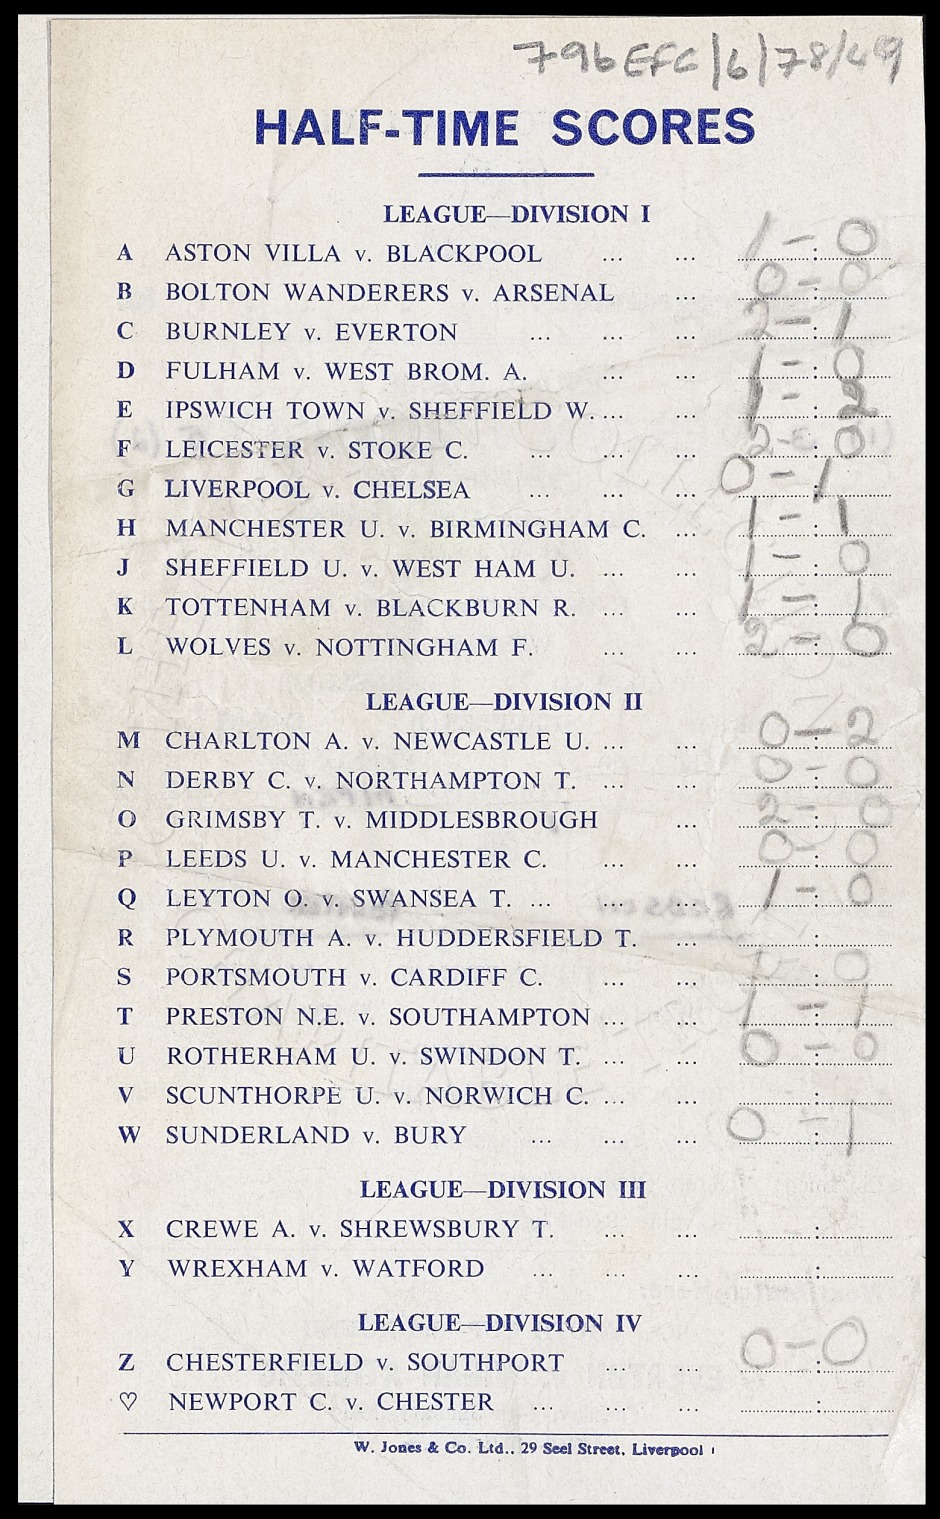 796 EFC/6/78/49
HALF-TIME SCORES
LEAGUE—DIVISION I
A ASTON VILLA v. BLACKPOOL ... ... 1 - : 0
B BOLTON WANDERERS v. ARSENAL ... 0 - : 0
C BURNLEY v. EVERTON ... ... ... 2 - : 1
D FULHAM v. WEST BROM. A. ... ... 1 - : 0
E IPSWICH TOWN v. SHEFFIELD W. ... ... 1 - : 2
F LEICESTER v. STOKE C. ... ... ... 2 - : 0
G LIVERPOOL v. CHELSEA ... ... ... 0 - : 1
H MANCHESTER U. v. BIRMINGHAM C. ... 1 - : 1
J SHEFFIELD U. v. WEST HAM U. ... ... 1 - : 0
K TOTTENHAM v. BLACKBURN R. ... ... 1 - : 1
L WOLVES v. NOTTINGHAM F. ... ... 2 - : 0
LEAGUE—DIVISION II
M CHARLTON A. v. NEWCASTLE U. ... ... 0 - : 2
N DERBY C. v. NORTHAMPTON T. ... ... 0 - : 0
O GRIMSBY T. v. MIDDLESBROUGH ... 2 - : 0
P LEEDS U. v. MANCHESTER C. ... ... 0 - : 0
Q LEYTON O. v. SWANSEA T. ... ... ... 1 - : 0
R PLYMOUTH A. v. HUDDERSFIELD T. ... :
S PORTSMOUTH v. CARDIFF C. ... ... 1 - : 0
T PRESTON N.E. v. SOUTHAMPTON ... ... 1 - : 1
U ROTHERHAM U. v. SWINDON T. ... ... 0 - : 0
V SCUNTHORPE U. v. NORWICH C. ... ... :
W SUNDERLAND v. BURY ... ... ... 0 - : 1
LEAGUE—DIVISION III
X CREWE A. v. SHREWSBURY T. ... ... :
Y WREXHAM v. WATFORD ... ... ... :
LEAGUE—DIVISION IV
Z CHESTERFIELD v. SOUTHPORT ... ... 0 - : 0
♡ NEWPORT C. v. CHESTER ... ... ... :
W. Jones & Co. Ltd., 29 Seel Street, Liverpool 1